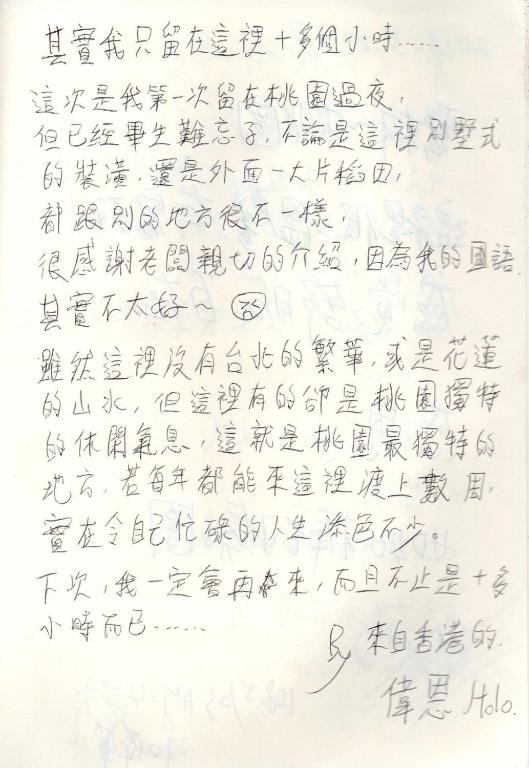 其實我只留在這裡十多個小時……
這次是我第一次留在桃園過夜，
但已經畢生難忘了，不論是這裡別墅式
的裝潢，還是外面一大片稻田，
都跟別的地方很不一樣，
很感謝老闆親切的介紹，因為我的國語
其實不太好～
雖然這裡沒有台北的繁華，或是花蓮
的山水，但這裡有的卻是桃園獨特
的休閑氣息，這就是桃園最獨特的
地方，若每年都能來這裡渡上數周，
實在令自己忙碌的人生添色不少。
下次，我一定會再來，而且不止是十多
小時而已……
By 來自香港的
偉恩 Holo.